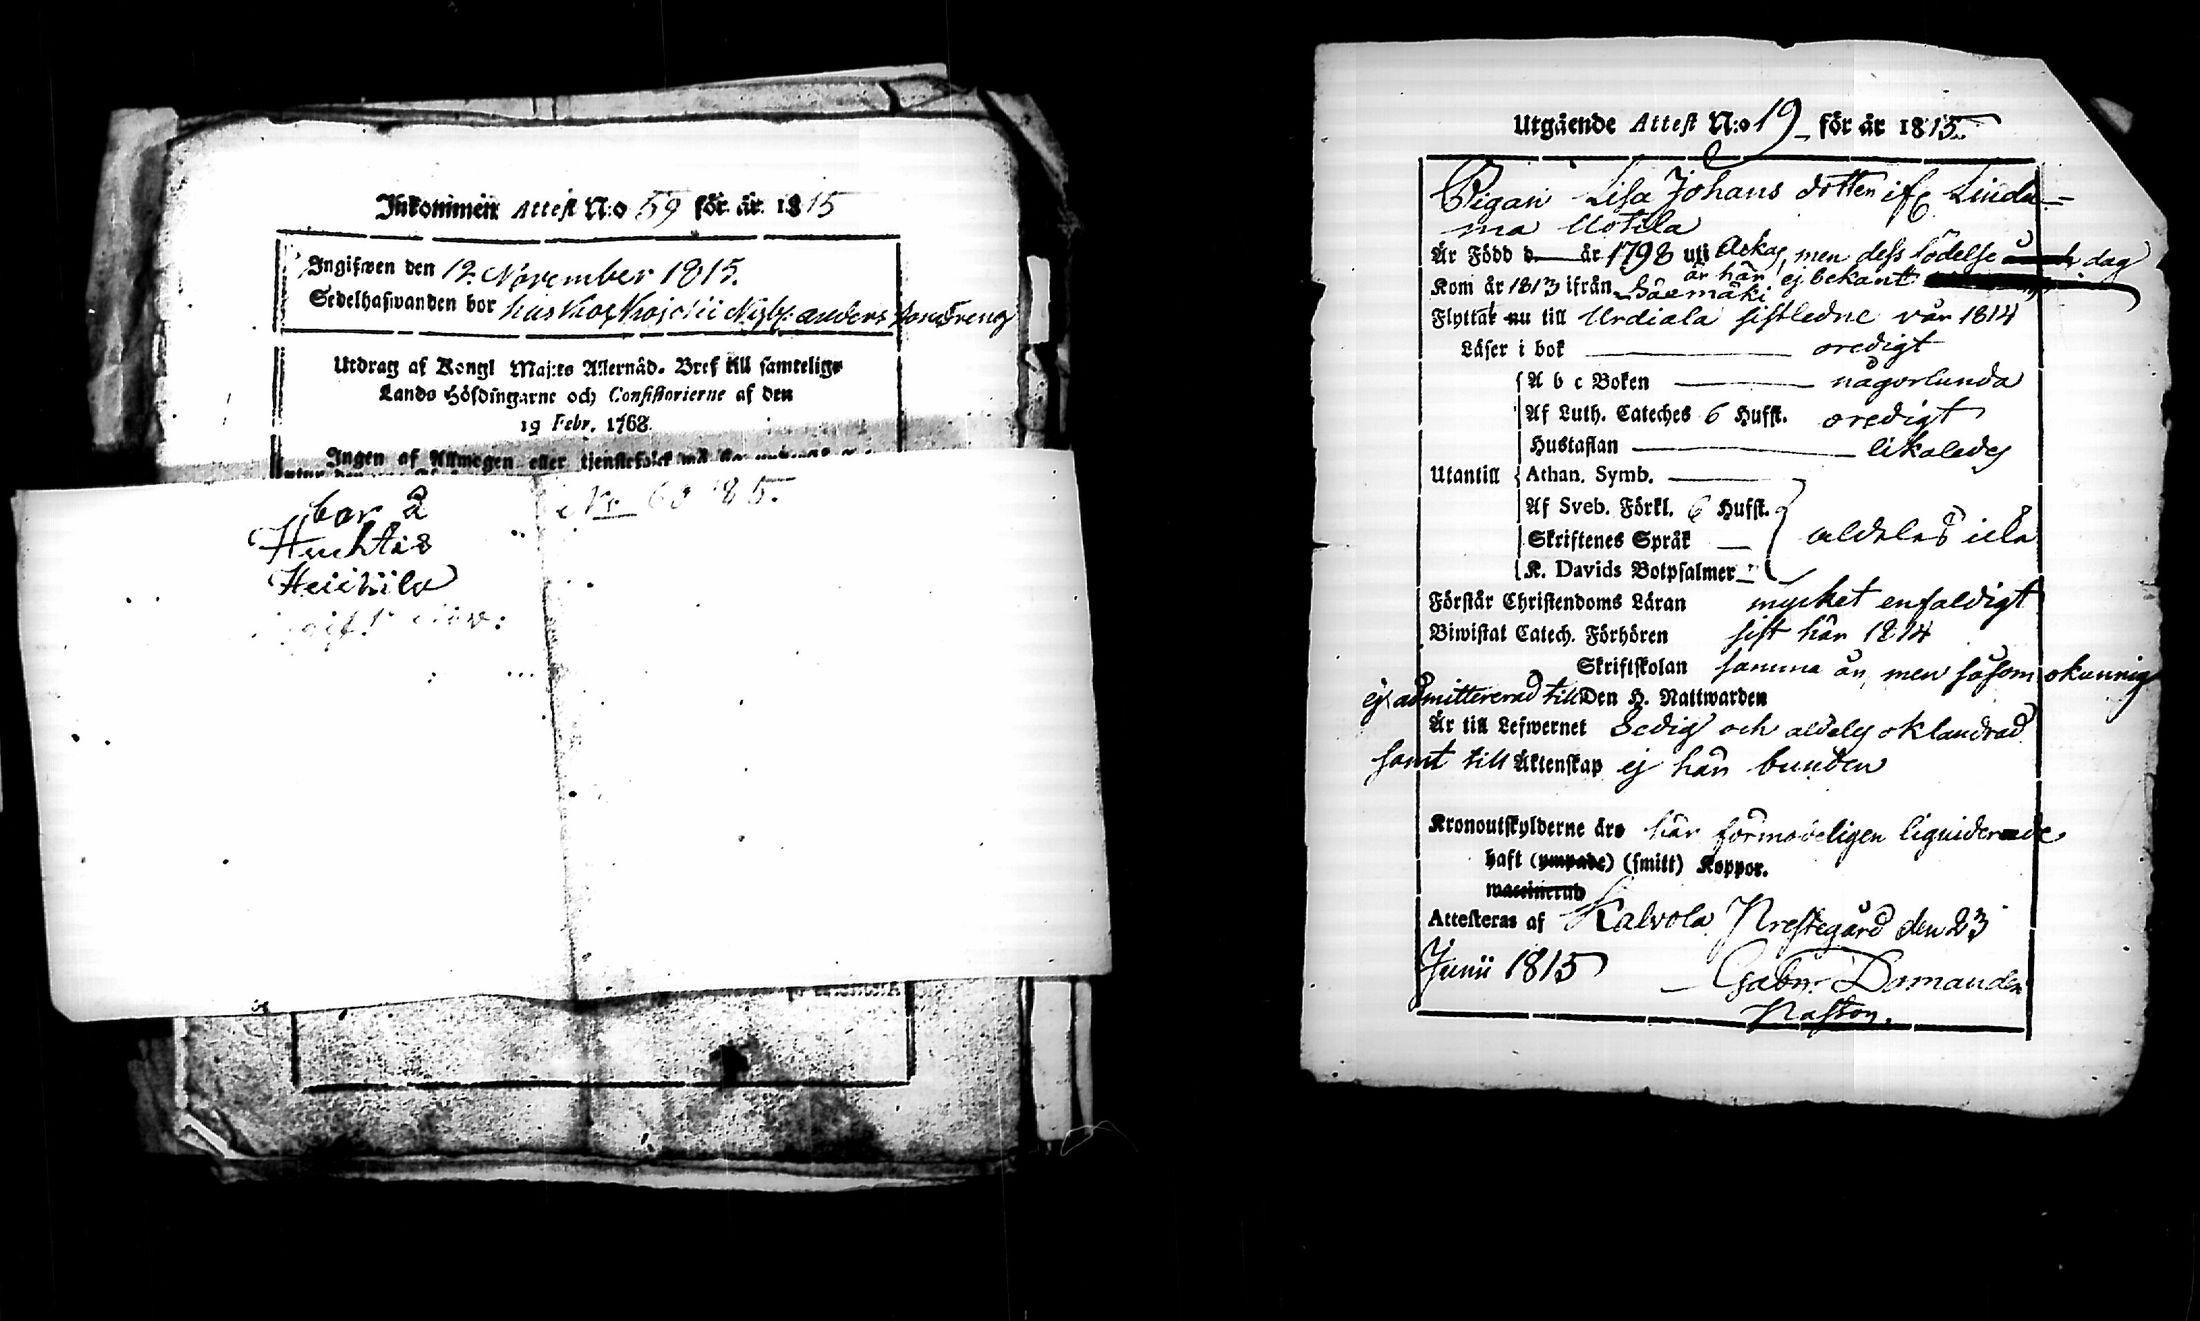 Inkommen Attest N:o 59 för år 1815
Ingifwen den 12 November 1815.
Sedelhafwanden bor hos
Utdrag af Kongl Maj:ts Allernåd. Bref till samtelige
Lands Höfdingarne och Consistorierne af den
19 Febr. 1768.
Ingen af Allmogen eller
bor å
Huhtis
Heikkilä
Utgående Attest N:o 19 för år 1815.
Pigan Lisa Johans dotter ifr Linda=
ma Uotila
Är Född d år 1798 uti Ackas, men dess födelse dag
är här ej bekant
Kom år 1813 ifrån Sääxmäki
Flyttat nu till Urdiala sistledne vår 1814
Läser i bok oredigt
A b c Boken någorlunda
Af Luth. Cateches 6 Hufst. oredigt
Hustaflan likaledes
Utantill Athan. Symb.
Af Sveb. Förkl. 6 Hufst.
Skriftenes Språk aldeles illa
K. Davids Botpsalmer
Förstår Christendoms Läran mycket enfaldigt
Biwistat Catech. Förhören sist här 1814
Skriftskolan samma år, men såsom okunnig
ej admittererad till Den H. Nattwarden
Är till Lefwernet Sedig och aldeles oklandrad
samt till Äktenskap ej här bunden
Kronoutskylderne äro här förmodeligen liquiderade
haft (ympade) (smitt) Koppor.
waccinerad
Attesteras af Kalvola Prestegård den 23
Junii 1815 Gabr. Domander
Pastor.